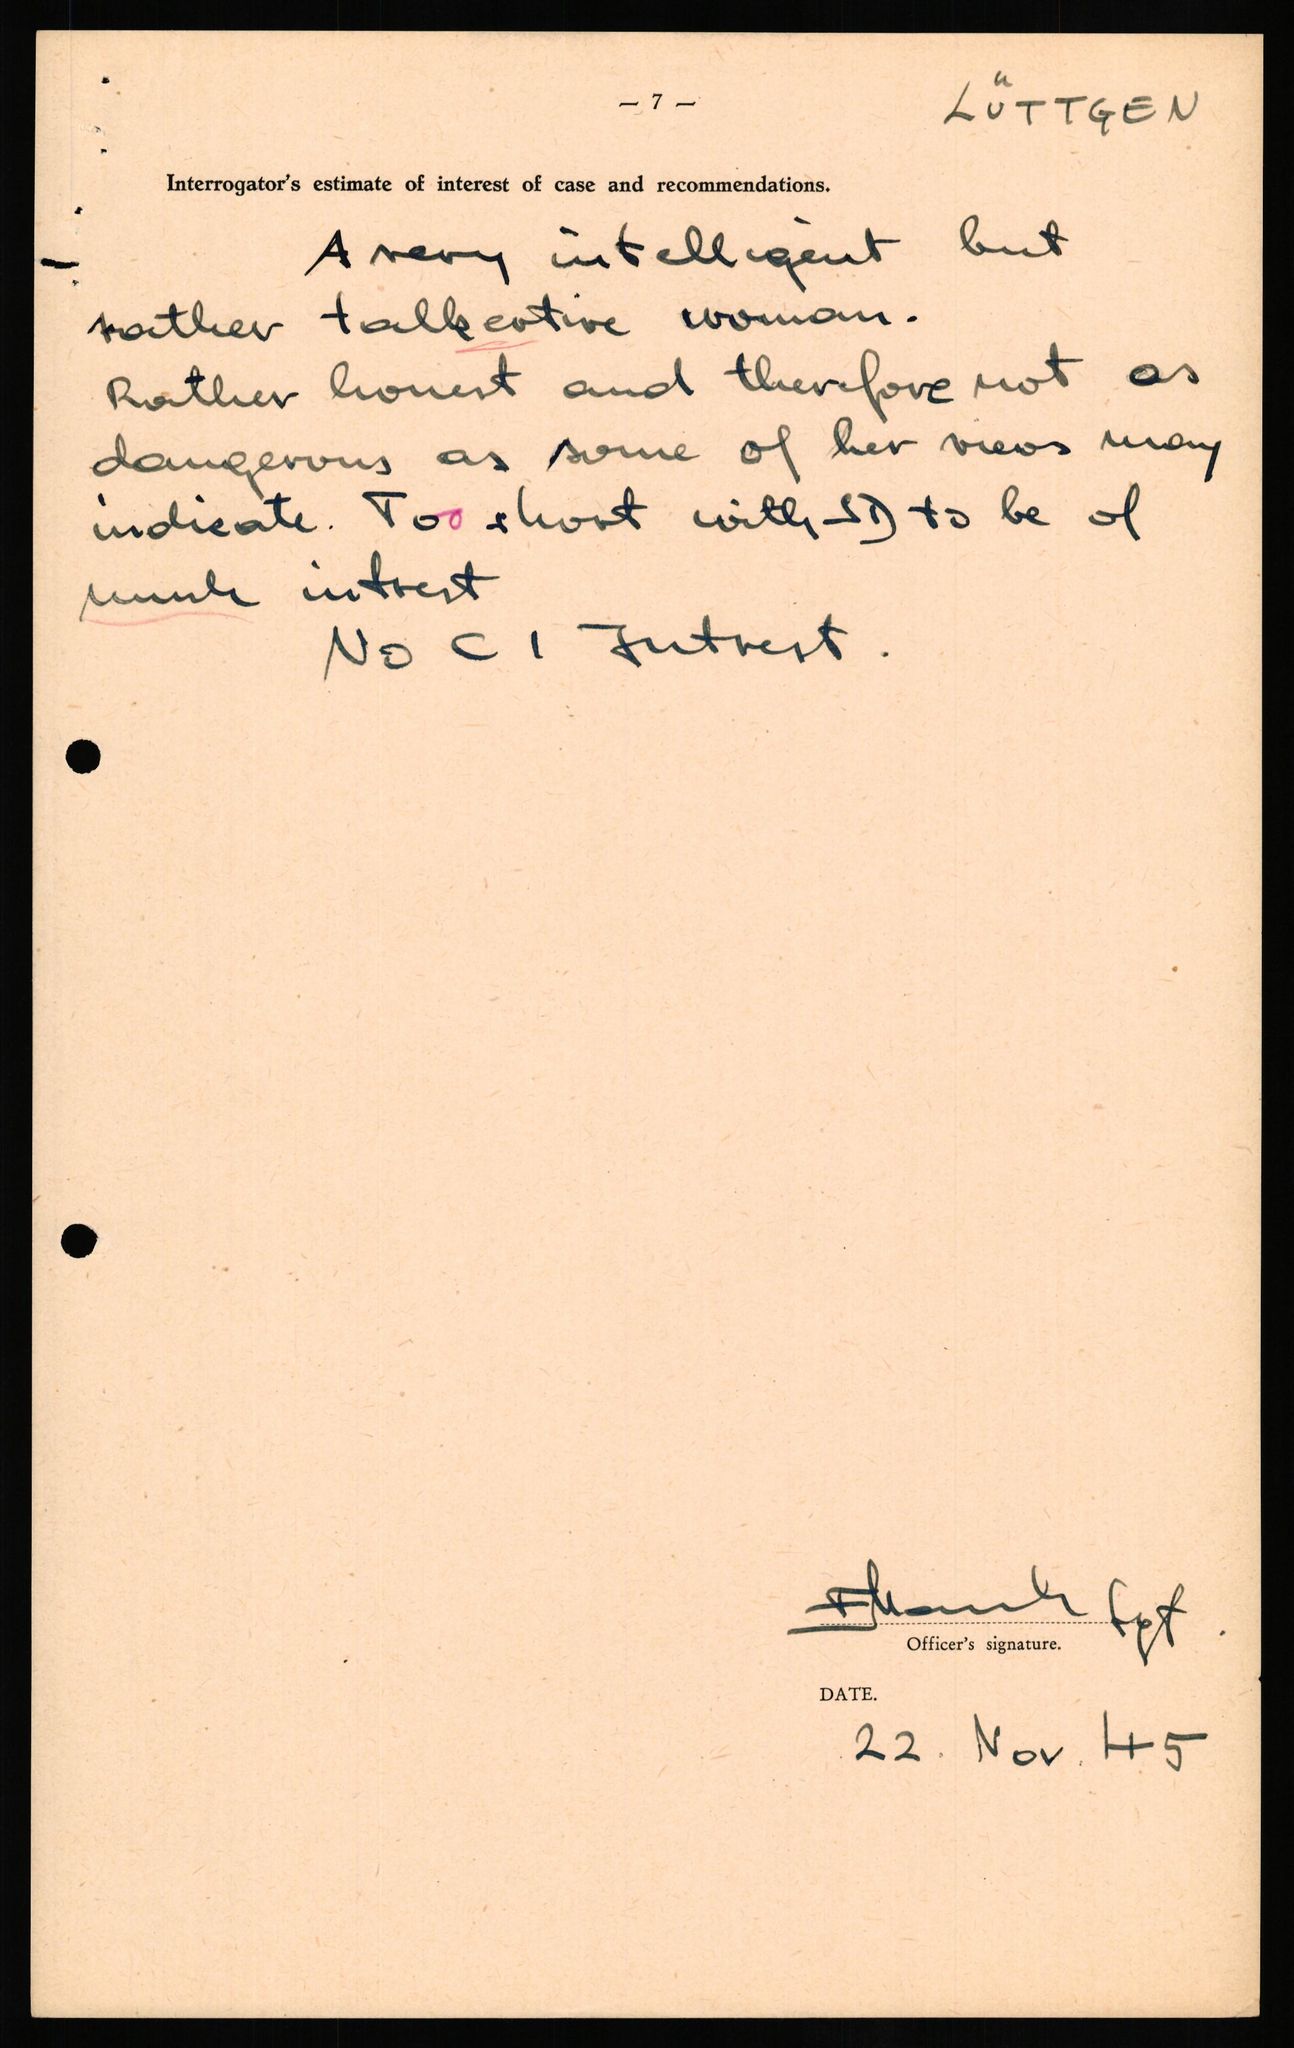 — 7 —
LÜTTGEN
Interrogator's estimate of interest of case and recommendations.
A very intelligent but
rather talkertive woman.
Rather honest and therefore not as
dangerous as some of her views may
indicate. Too short with SD to be of
much intrest
No C I Intrest.
Sgt.
Officer's signature.
DATE.
22. Nov. 45